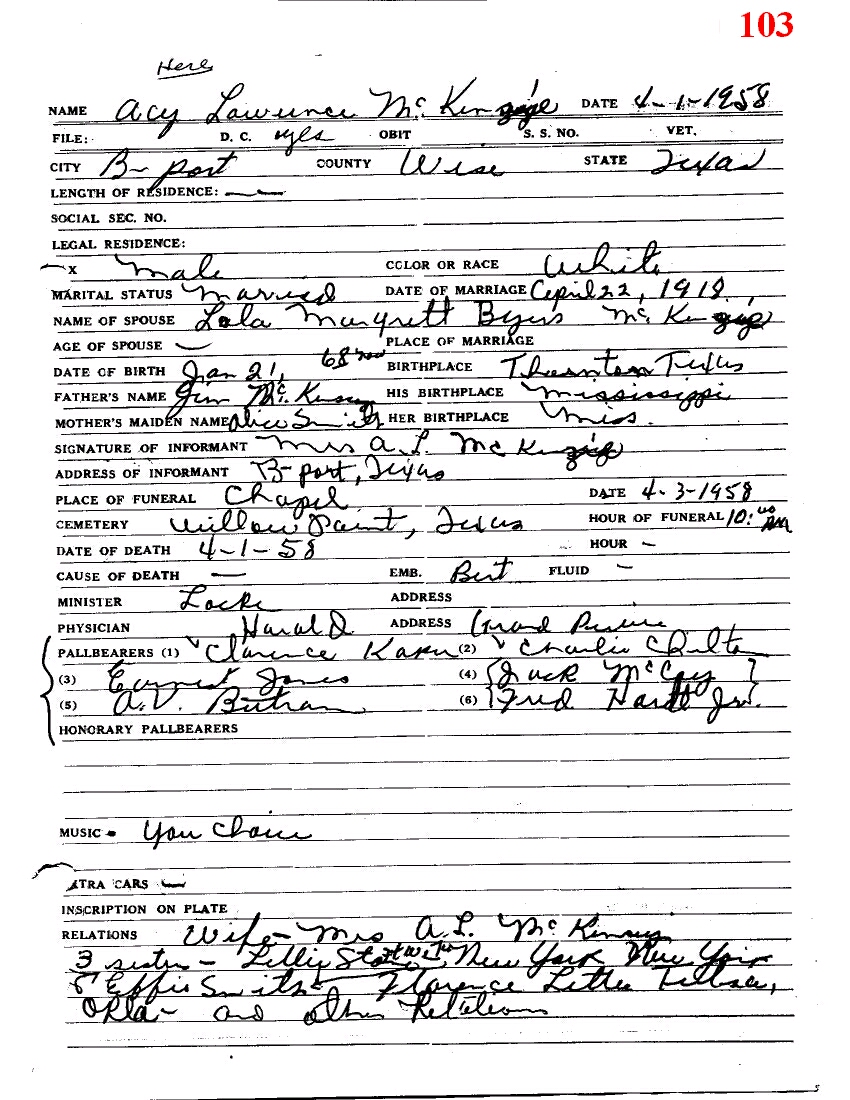 103
Here
NAME Acy Lawrence McKenzie DATE 4-1-1958
FILE: D. C. yes OBIT S. S. NO. VET.
CITY B-port COUNTY Wise STATE Texas
LENGTH OF RESIDENCE: —
SOCIAL SEC. NO.
LEGAL RESIDENCE:
X Male COLOR OR RACE White
MARITAL STATUS Married DATE OF MARRIAGE April 22, 1918
NAME OF SPOUSE Lola Margrett Byers Mc
AGE OF SPOUSE — PLACE OF MARRIAGE
DATE OF BIRTH Jan 21, 68 BIRTHPLACE Thornton Texas
FATHER'S NAME Jim McKinsey HIS BIRTHPLACE Mississippi
MOTHER'S MAIDEN NAME Alice Smith HER BIRTHPLACE Miss.
SIGNATURE OF INFORMANT Mrs A. L. McKenzie
ADDRESS OF INFORMANT B-port, Texas
PLACE OF FUNERAL Chapel DATE 4-3-1958
CEMETERY Willow Point, Texas HOUR OF FUNERAL 10:00 AM
DATE OF DEATH 4-1-58 HOUR —
CAUSE OF DEATH — EMB. Burt FLUID —
MINISTER Locke ADDRESS
PHYSICIAN Harold ADDRESS Grand Prairie
PALLBEARERS (1) Clarence (2) Charlie Chilton
(3) Earnest Jones (4) Jack McCoy
(5) A.V. (6) Fred Hardt Jr.
HONORARY PALLBEARERS
MUSIC You Choice
XTRA CARS —
INSCRIPTION ON PLATE
RELATIONS Wife - Mrs A.L. McKinsey
3 sister - Lillie New York New York
Effie Smith - Florence Little Tulsa,
Okla - and other Relations